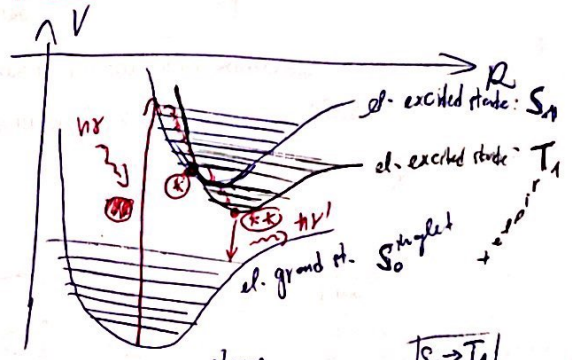 V
R
el. excited state: S₁
hν
el. excited state: T₁
*
** hν'
el. ground st. S₀ singlet
triplet
S → T₁